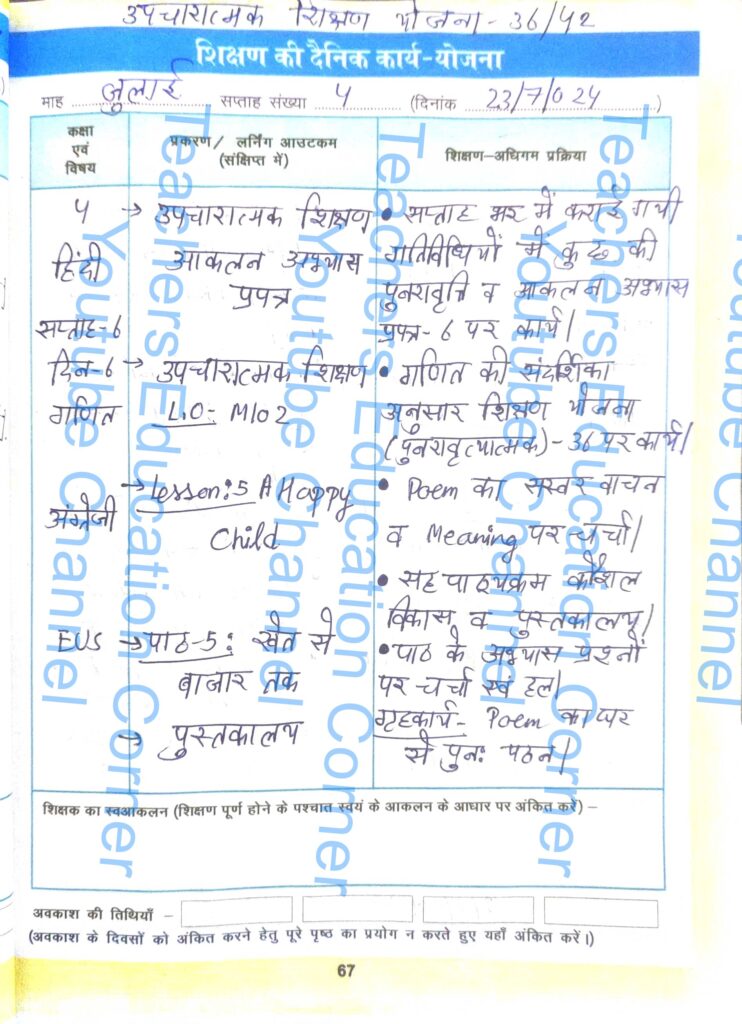 उपचारात्मक शिक्षण योजना - 36/42
शिक्षण की दैनिक कार्य-योजना
माह जुलाई सप्ताह संख्या 4 (दिनांक 23/7/024)
कक्षा एवं विषय
प्रकरण / लर्निंग आउटकम (संक्षिप्त में)
शिक्षण-अधिगम प्रक्रिया
4
हिंदी
सप्ताह-6
दिन-6
→ उपचारात्मक शिक्षण
आकलन अभ्यास
प्रपत्र
• सप्ताह भर में कराई गयी
गतिविधियों में कुछ की
पुनरावृत्ति व आकलन अभ्यास
प्रपत्र-6 पर कार्य।
गणित
→ उपचारात्मक शिक्षण
L.O- M102
• गणित की संदर्शिका
अनुसार शिक्षण योजना
(पुनरावृत्यात्मक) - 36 पर कार्य।
अंग्रेजी
→ Lesson:5 A Happy
Child
• Poem का सस्वर वाचन
व Meaning पर चर्चा।
• सह पाठ्यक्रम कौशल
विकास व पुस्तकालय।
EVS
→ पाठ-5: खेत से
बाजार तक
→ पुस्तकालय
• पाठ के अभ्यास प्रश्नों
पर चर्चा एवं हल।
गृहकार्य- Poem का घर
से पुनः पठन।
शिक्षक का स्वआकलन (शिक्षण पूर्ण होने के पश्चात स्वयं के आकलन के आधार पर अंकित करें) –
अवकाश की तिथियाँ –
(अवकाश के दिवसों को अंकित करने हेतु पूरे पृष्ठ का प्रयोग न करते हुए यहाँ अंकित करें।)
67
Teachers Education Corner
Youtube Channel
Teachers Education Corner
Youtube Channel
Teachers Education Corner
Youtube Channel